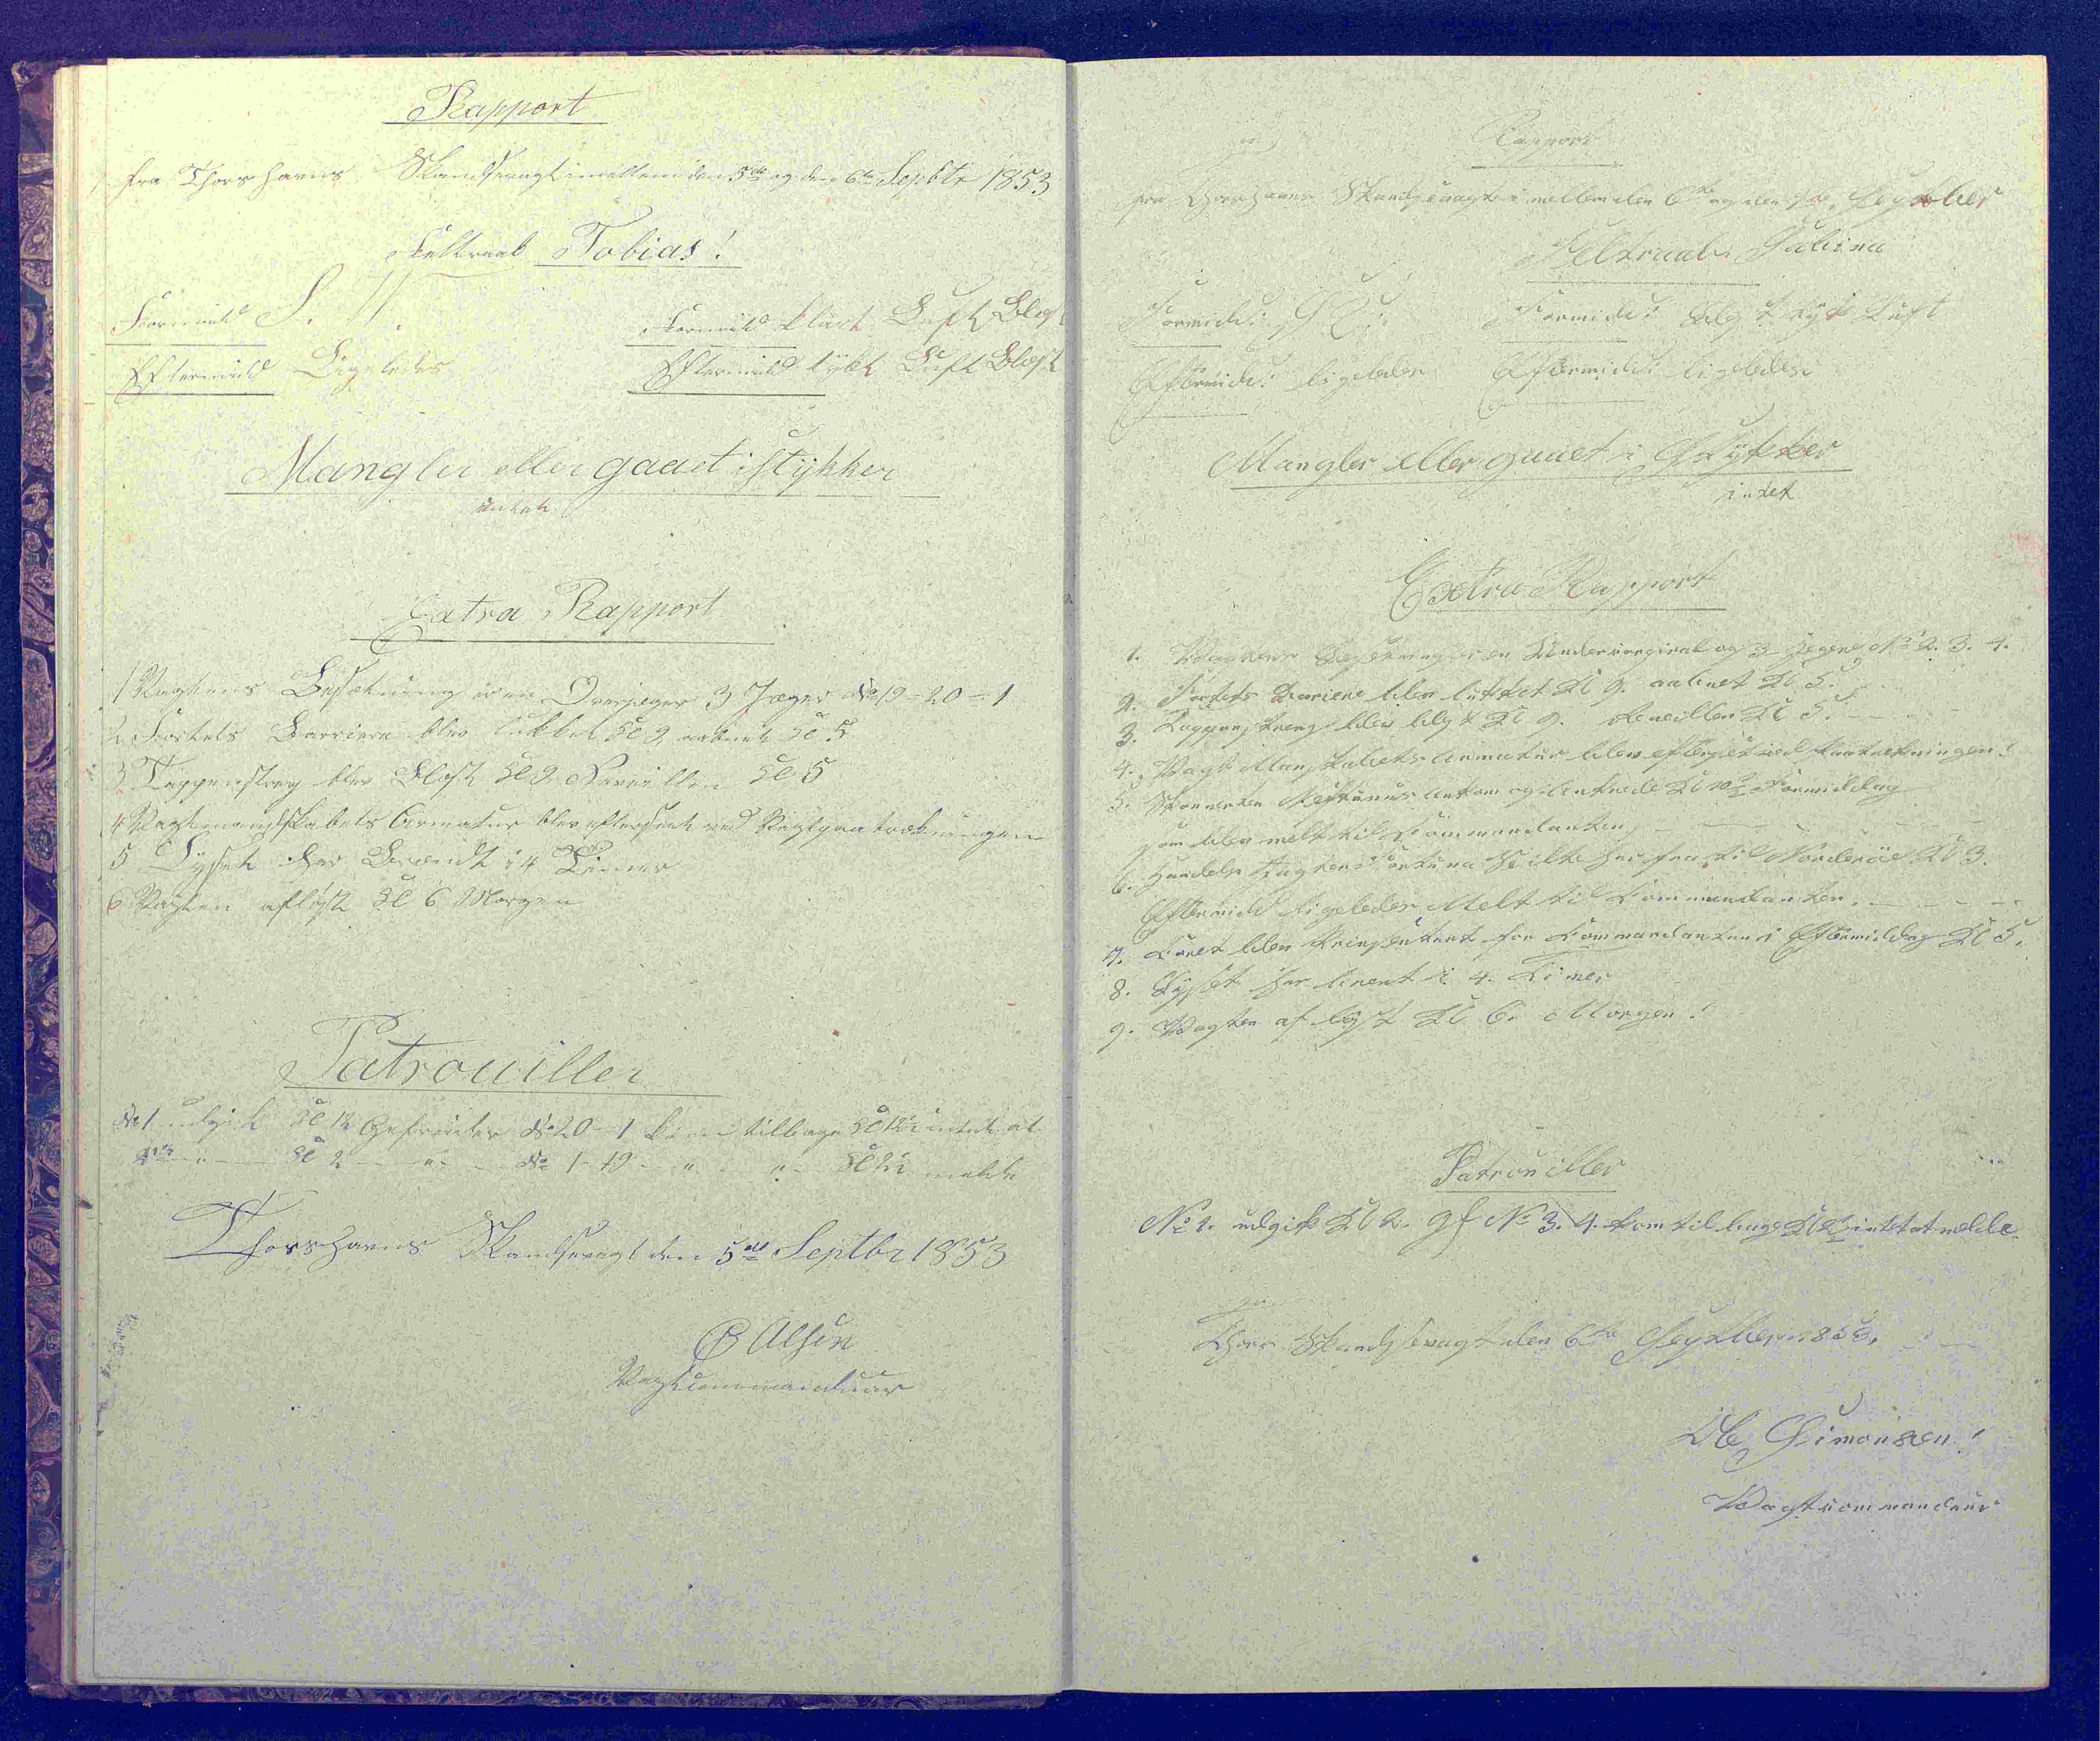 Rapport
fra Thorshavns Skandsevagt imellem den 5te og den 6te Septbr 1853
Feltraab Tobias!
Formidd S. V. Formidd klart Luft Blæst
Eftermidd Ligeledes Eftermidd tykt Luft Blæst
Mangler eller gaaet i stykker
intet
Extra Rapport
1 Vagtens Besætning er en Overjæger 3 Jæger No 19 - 20 - 1
2 Fortets Barriere blev lukket Kl 9 aabnet Kl 5
3 Tappenstreg blev Blæst Kl 9 Reveillen Kl 5
4 Vagtmandskabets Armatur blev efterseet ved Vagtpaatrækningen
5 Lyset har Brændt i 4 Timer
6 Vagten afløst Kl 6 Morgen
Patrouiller
No 1 udgik Kl 12 Gefreider No 20 - 1 kom tilbage Kl 12½ intet at
Kl 2 - " - No 1 - 19 - " - " - Kl 2½ melde
Thorshavns Skandsevagt den 5te Septbr 1853
Olsen
Vagtcommandeur
Rapport
fra Thorshavns Skandsevagt imellem den 6te og den 7de Septber
Feltraab: Sabina
Formidd: Formidd: tyk Luft
Eftermidd: ligeledes Eftermidd: ligeledes
Mangler eller gaaet i Stykker
intet
Extra Rapport
1. Vagtens Besætning er en Undercorporal og 3 Jegere No 2. 3. 4.
2. Fortets Bariere blev lukket Kl 9. aabnet Kl 5.
3. Tappenstreng blev blæst Kl 9. Reveillen Kl 5.
4. Vagt Mandskabets Armatur blev efterset ved Vagtretningen!
5. Skonnerten Neptunus ankom og ankrede Kl 10½ Formiddag
som blev melt til Commandanten
6. Handels Jagten Fortuna seilte her fra til Norderöe Kl 3.
Eftermidd ligeledes Melt til Commandanten.
7. blev for Commandanten i Eftermiddag Kl 5.
8. Lyset har brent i 4. Timer
9. Vagten afløst Kl 6. Morgen!
Patrouiller
No 1. udgik Kl 2. gf No 3. 4. kom tilbage Kl 2½ intet at melde.
Thors Skandsevagt den 6te Septber 1853.
Simonsen!
Vagtcommandeur